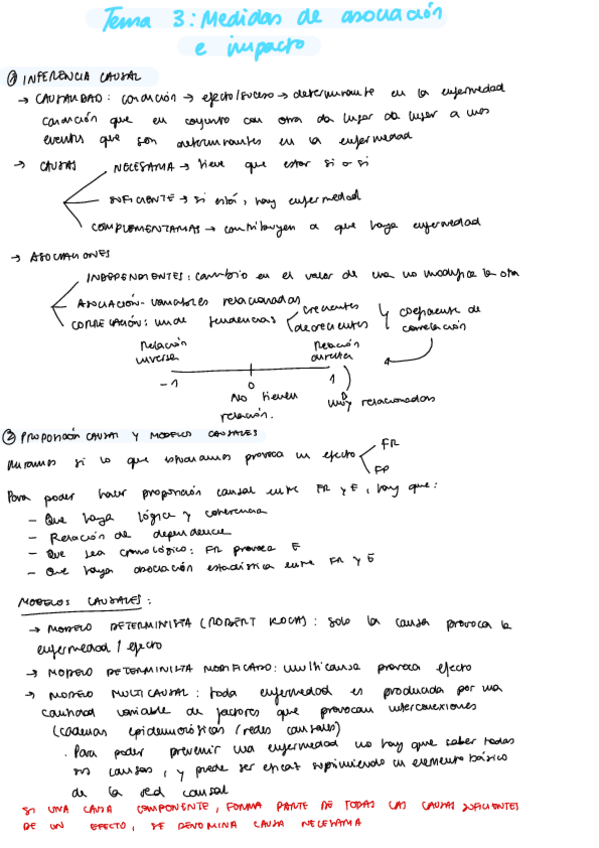 Tema 3: Medidas de asociación
e impacto
① INFERENCIA CAUSAL
→ CAUSALIDAD: condición → efecto/suceso → determinante en la enfermedad
condición que en conjunto con otra da lugar da lugar a unos
eventos que son determinantes en la enfermedad
→ CAUSAS
NECESARIA → tiene que estar si o si
SUFICIENTE → si está, hay enfermedad
COMPLEMENTARIAS → contribuyen a que haya enfermedad
→ ASOCIACIONES
INDEPENDIENTES: cambio en el valor de una no modifica la otra
ASOCIACIÓN - variables relacionadas
CORRELACIÓN: mide tendencias
crecientes
decrecientes
coeficiente de
correlación
Relación
inversa
Relación
directa
-1
0
1
No tienen
relación.
muy relacionadas
② PROPOSICIÓN CAUSAL Y MODELOS CAUSALES
Miramos si lo que estudiamos provoca un efecto
FR
FP
Para poder hacer proporción causal entre FR y E, hay que:
- Que haya lógica y coherencia
- Relación de dependencia
- Que sea cronológico: FR provoca E
- Que haya asociación estadística entre FR y E
MODELOS CAUSALES:
→ MODELO DETERMINISTA (ROBERT KOCH): solo la causa provoca la
enfermedad / efecto
→ MODELO DETERMINISTA MODIFICADO: multicausa provoca efecto
→ MODELO MULTICAUSAL: toda enfermedad es producida por una
cantidad variable de factores que provocan interconexiones
(cadenas epidemiológicas / redes causales)
. Para poder prevenir una enfermedad no hay que saber todas
sus causas, y puede ser eficaz suprimiendo un elemento básico
de la red causal
SI UNA CAUSA COMPONENTE, FORMA PARTE DE TODAS LAS CAUSAS SUFICIENTES
DE UN EFECTO, SE DENOMINA CAUSA NECESARIA